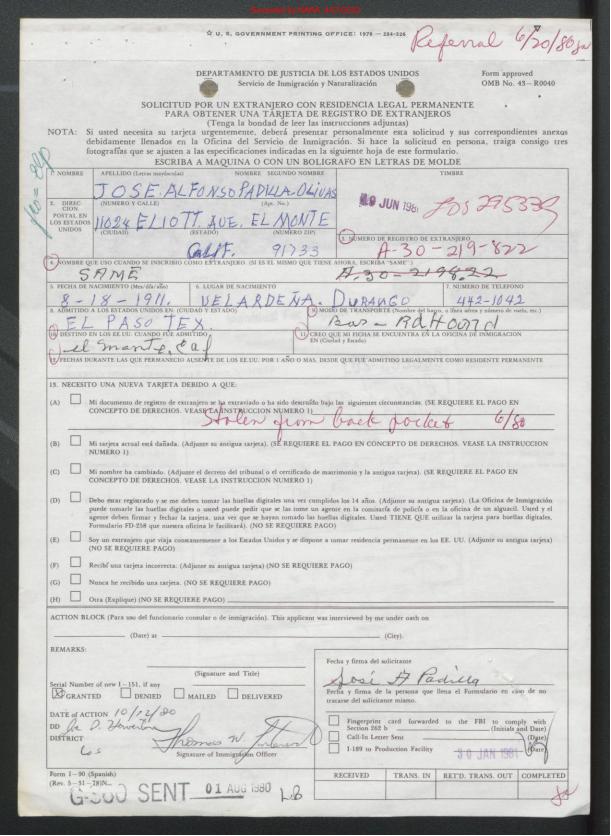 ☆ U. S. GOVERNMENT PRINTING OFFICE: 1978 — 284-326
Referral 6/20/80
DEPARTAMENTO DE JUSTICIA DE LOS ESTADOS UNIDOS
Servicio de Inmigración y Naturalización
Form approved
OMB No. 43—R0040
SOLICITUD POR UN EXTRANJERO CON RESIDENCIA LEGAL PERMANENTE
PARA OBTENER UNA TARJETA DE REGISTRO DE EXTRANJEROS
(Tenga la bondad de leer las instrucciones adjuntas)
NOTA: Si usted necesita su tarjeta urgentemente, deberá presentar personalmente esta solicitud y sus correspondientes anexos
debidamente llenados en la Oficina del Servicio de Inmigración. Si hace la solicitud en persona, traiga consigo tres
fotografías que se ajusten a las especificaciones indicadas en la siguiente hoja de este formulario.
ESCRIBA A MAQUINA O CON UN BOLIGRAFO EN LETRAS DE MOLDE
1. NOMBRE APELLIDO (Letras mayúsculas) NOMBRE SEGUNDO NOMBRE TIMBRE
JOSE. ALFONSO PADILLA. OLIVAS
JUN 1981
LOS 295339
2. DIRECCION POSTAL EN LOS ESTADOS UNIDOS
(NUMERO Y CALLE) (Apt. No.)
11024 ELIOTT AVE. EL MONTE
(CIUDAD) (ESTADO) (NUMERO ZIP)
Calif. 91733
3. NUMERO DE REGISTRO DE EXTRANJERO
A-30-219-822
4. NOMBRE QUE USO CUANDO SE INSCRIBIO COMO EXTRANJERO. (SI ES EL MISMO QUE TIENE AHORA, ESCRIBA "SAME")
SAME
A.30-219822
5. FECHA DE NACIMIENTO (Mes/día/año) 6. LUGAR DE NACIMIENTO 7. NUMERO DE TELEFONO
8-18-1911. VELARDEÑA. DURANGO 442-1042
8. ADMITIDO A LOS ESTADOS UNIDOS EN: (CIUDAD Y ESTADO) 9. MODO DE TRANSPORTE (Nombre del barco, o línea aérea y número de vuelo, etc.)
EL PASO TEX.
10. DESTINO EN LOS EE.UU. CUANDO FUE ADMITIDO 11. CREO QUE MI FICHA SE ENCUENTRA EN LA OFICINA DE INMIGRACION
EN (Ciudad y Estado)
el monte, Caf
12. FECHAS DURANTE LAS QUE PERMANECIO AUSENTE DE LOS EE.UU. POR 1 AÑO O MAS, DESDE QUE FUE ADMITIDO LEGALMENTE COMO RESIDENTE PERMANENTE
13. NECESITO UNA NUEVA TARJETA DEBIDO A QUE:
(A) Mi documento de registro de extranjero se ha extraviado o ha sido destruido bajo las siguientes circunstancias. (SE REQUIERE EL PAGO EN
CONCEPTO DE DERECHOS. VEASE LA INSTRUCCION NUMERO 1)
Stolen from back pocket 6/80
(B) Mi tarjeta actual está dañada. (Adjunte su antigua tarjeta). (SE REQUIERE EL PAGO EN CONCEPTO DE DERECHOS. VEASE LA INSTRUCCION
NUMERO 1)
(C) Mi nombre ha cambiado. (Adjunte el decreto del tribunal o el certificado de matrimonio y la antigua tarjeta). (SE REQUIERE EL PAGO EN
CONCEPTO DE DERECHOS. VEASE LA INSTRUCCION NUMERO 1)
(D) Debo estar registrado y se me deben tomar las huellas digitales una vez cumplidos los 14 años. (Adjunte su antigua tarjeta). (La Oficina de Inmigración
puede tomarle las huellas digitales o usted puede pedir que se las tome un agente en la comisaría de policía o en la oficina de un alguacil. Usted y el
agente deben firmar y fechar la tarjeta, una vez que se hayan tomado las huellas digitales. Usted TIENE QUE utilizar la tarjeta para huellas digitales,
Formulario FD-258 que nuestra oficina le facilitará). (NO SE REQUIERE PAGO)
(E) Soy un extranjero que viaja constantemente a los Estados Unidos y se dispone a tomar residencia permanente en los EE. UU. (Adjunte su antigua tarjeta)
(NO SE REQUIERE PAGO)
(F) Recibí una tarjeta incorrecta. (Adjunte su antigua tarjeta) (NO SE REQUIERE PAGO)
(G) Nunca he recibido una tarjeta. (NO SE REQUIERE PAGO)
(H) Otra (Explique) (NO SE REQUIERE PAGO)
ACTION BLOCK (Para uso del funcionario consular o de inmigración). This applicant was interviewed by me under oath on
(Date) at (City).
REMARKS:
(Signature and Title)
Serial Number of new I-151, if any
GRANTED DENIED MAILED DELIVERED
DATE OF ACTION 10/12/80
DD
DISTRICT Los
Signature of Immigration Officer
Fecha y firma del solicitante
José A Padilla
Fecha y firma de la persona que llena el Formulario en caso de no
tratarse del solicitante mismo.
Fingerprint card forwarded to the FBI to comply with
Section 262 b (Initials and Date)
Call-In Letter Sent (Date)
I-189 to Production Facility 30 JAN 1981 (Date)
RECEIVED TRANS. IN RET'D. TRANS. OUT COMPLETED
Form I-90 (Spanish)
G-360 SENT 01 AUG 1980 LB